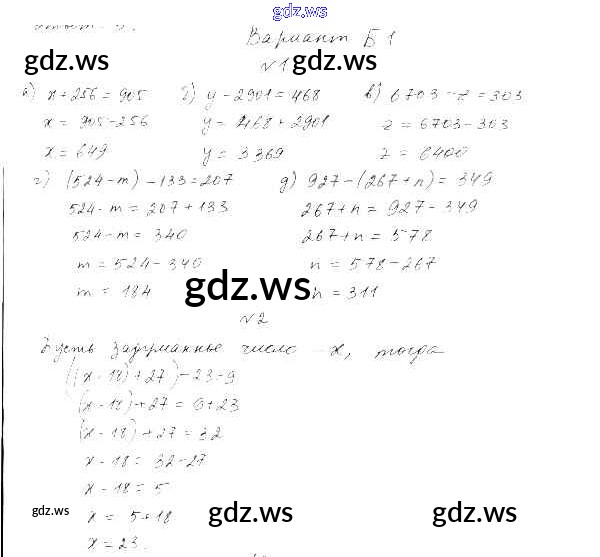 gdz.ws
Вариант Б1
gdz.ws №1 gdz.ws
а) x + 256 = 905 б) y - 2901 = 468 в) 6703 - z = 303
x = 905 - 256 y = 468 + 2901 z = 6703 - 303
x = 649 y = 3369 z = 6400
г) (524 - m) - 133 = 207 д) 927 - (267 + n) = 349
524 - m = 207 + 133 267 + n = 927 - 349
524 - m = 340 267 + n = 578
m = 524 - 340 n = 578 - 267
m = 184 gdz.ws n = 311
№2
Пусть задуманное число - x, тогда
((x - 18) + 27) - 23 = 9
(x - 18) + 27 = 9 + 23
(x - 18) + 27 = 32
x - 18 = 32 - 27
x - 18 = 5
gdz.ws x = 5 + 18 gdz.ws gdz.ws
x = 23.